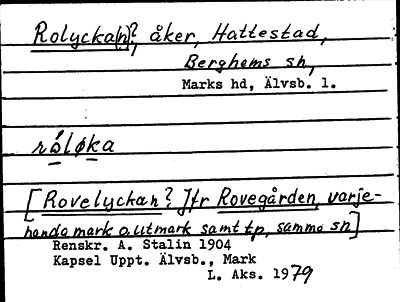 Rolycka[n]?, åker, Hattestad,
Berghems sn,
Marks hd, Älvsb. l.
råløka
[Rovelyckan? Jfr Rovegården, varje-
handa mark o. utmark samt tp, samma sn]
Renskr. A. Stalin 1904
Kapsel Uppt. Älvsb., Mark
L. Aks. 1979